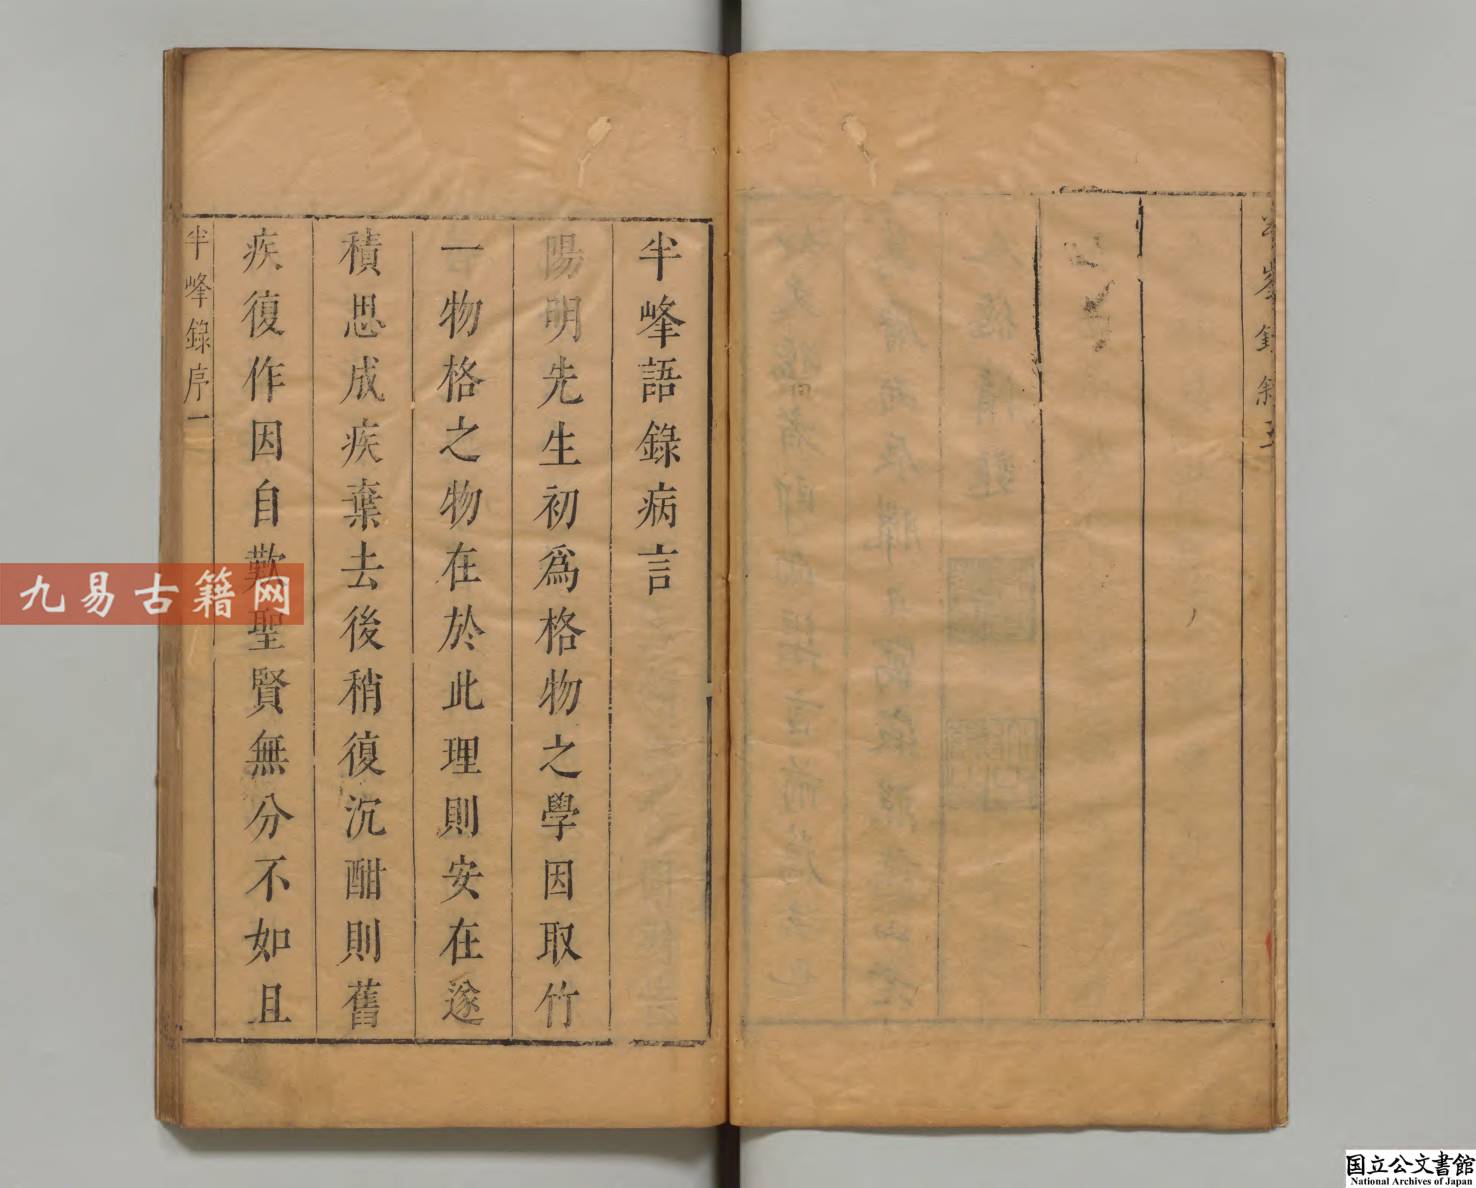 半峰語錄病言
陽明先生初爲格物之學因取竹
一物格之物在於此理則安在遂
積思成疾棄去後稍復沉酣則舊
疾復作因自歎聖賢無分不如且
半峰錄序一
九易古籍网
国立公文書館
National Archives of Japan